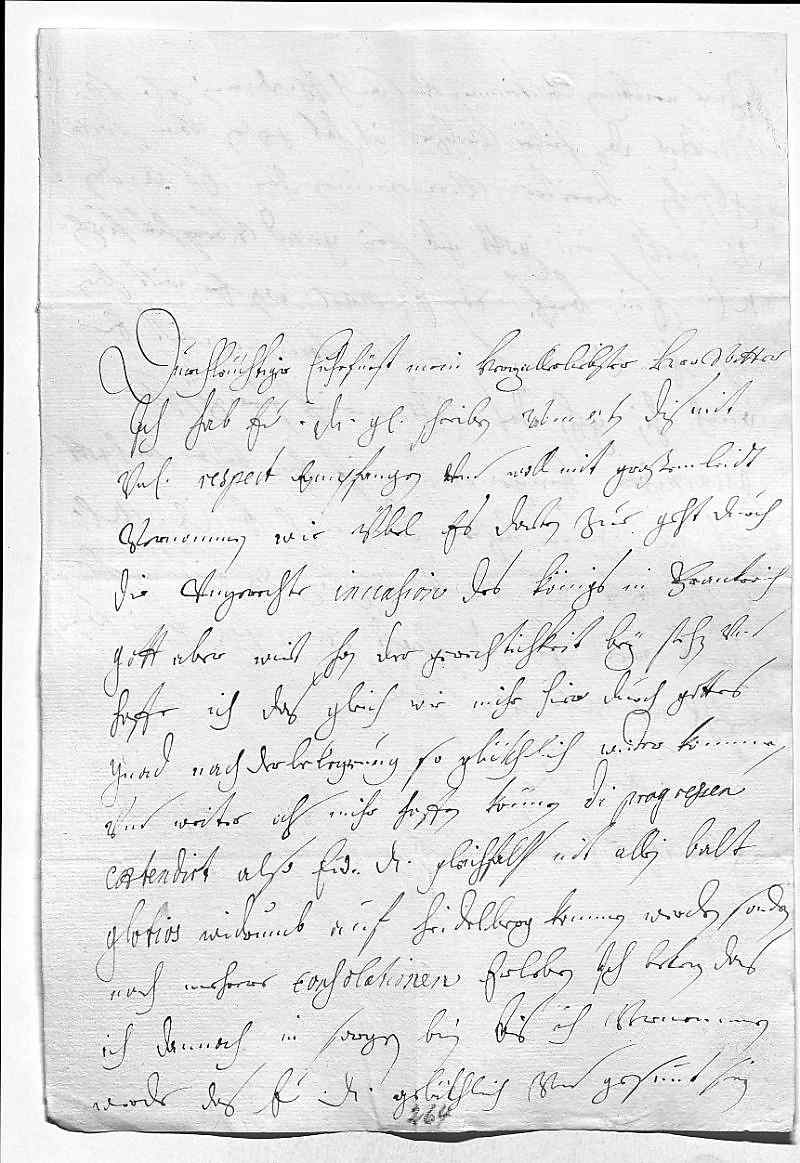 Durchleüchtiger Churfürst mein herzallerliebster herr Vetter
Ich hab Eu. di. gl. schreiben vom dismit
Vnl. respect Empfangen vnd woll mit großem leidt
Vernomen wie Übel Es dorten zue geht durch
die Vngerechte invasion des königs in Franckreich
gott aber wird der gerechtigkeit bey stehen vnd
hoffe ich das gleich wie mihr hier durch gottes
gnad nach der belegerung so glücklich wider komen
vnd weiter als mihr hoffen können di progressen
extendirt also Eu. di. gleichfals mit allen balt
glorios widerumb auf heidelberg komen werden
noch mehrere consolationen Erleben Ich beken das
ich dannoch in sorgen bin bis ich Vernomen
werde das Eu. di. glücklich vnd gesunt
264